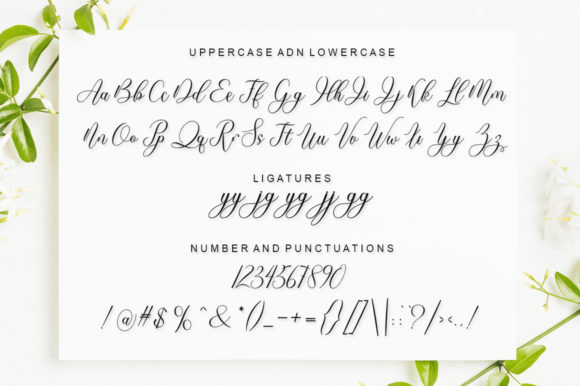 UPPERCASE ADN LOWERCASE
Aa Bb Cc Dd Ee Ff Gg Hh Ii Jj Kk Ll Mm
Nn Oo Pp Qq Rr Ss Tt Uu Vv Ww Xx Yy Zz
LIGATURES
yy jg yg jj gg
NUMBER AND PUNCTUATIONS
1234567890
!@#$%^&*()_-+={}[]\|:;'?/><.,!